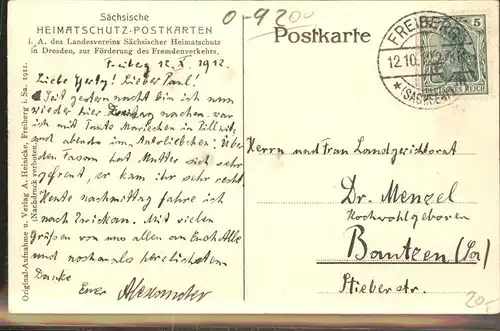 Sächsische
HEIMATSCHUTZ-POSTKARTEN
i. A. des Landesvereins Sächsischer Heimatschutz
in Dresden, zur Förderung des Fremdenverkehrs.
0-9200
Postkarte
FREIBERG
12.10.12
*(SACHSEN)
5
DEUTSCHES REICH
Freiberg 12. X. 1912.
Liebe Herty! Lieber Paul!
Seit gestern nacht bin ich nun
wieder hier nachm. war
ich mit Tante Mariechen in
und abends im Über
den Fasan hat Mutter sich sehr
gefreut, er kam ihr sehr recht.
Heute nachmittag fahre ich
nach Zwickau. Mit vielen
Grüßen von uns allen an Euch Alle
und nochmals herzlichsten
Danke
Euer Alexander
Herrn und Frau Landgerichtsrat
Dr. Menzel
Hochwohlgeboren
Bautzen (Sa)
Stieberstr.
20,-
Original-Aufnahme u. Verlag A. Heinicke, Freiberg i. Sa. 1911.
(Nachdruck verboten.)